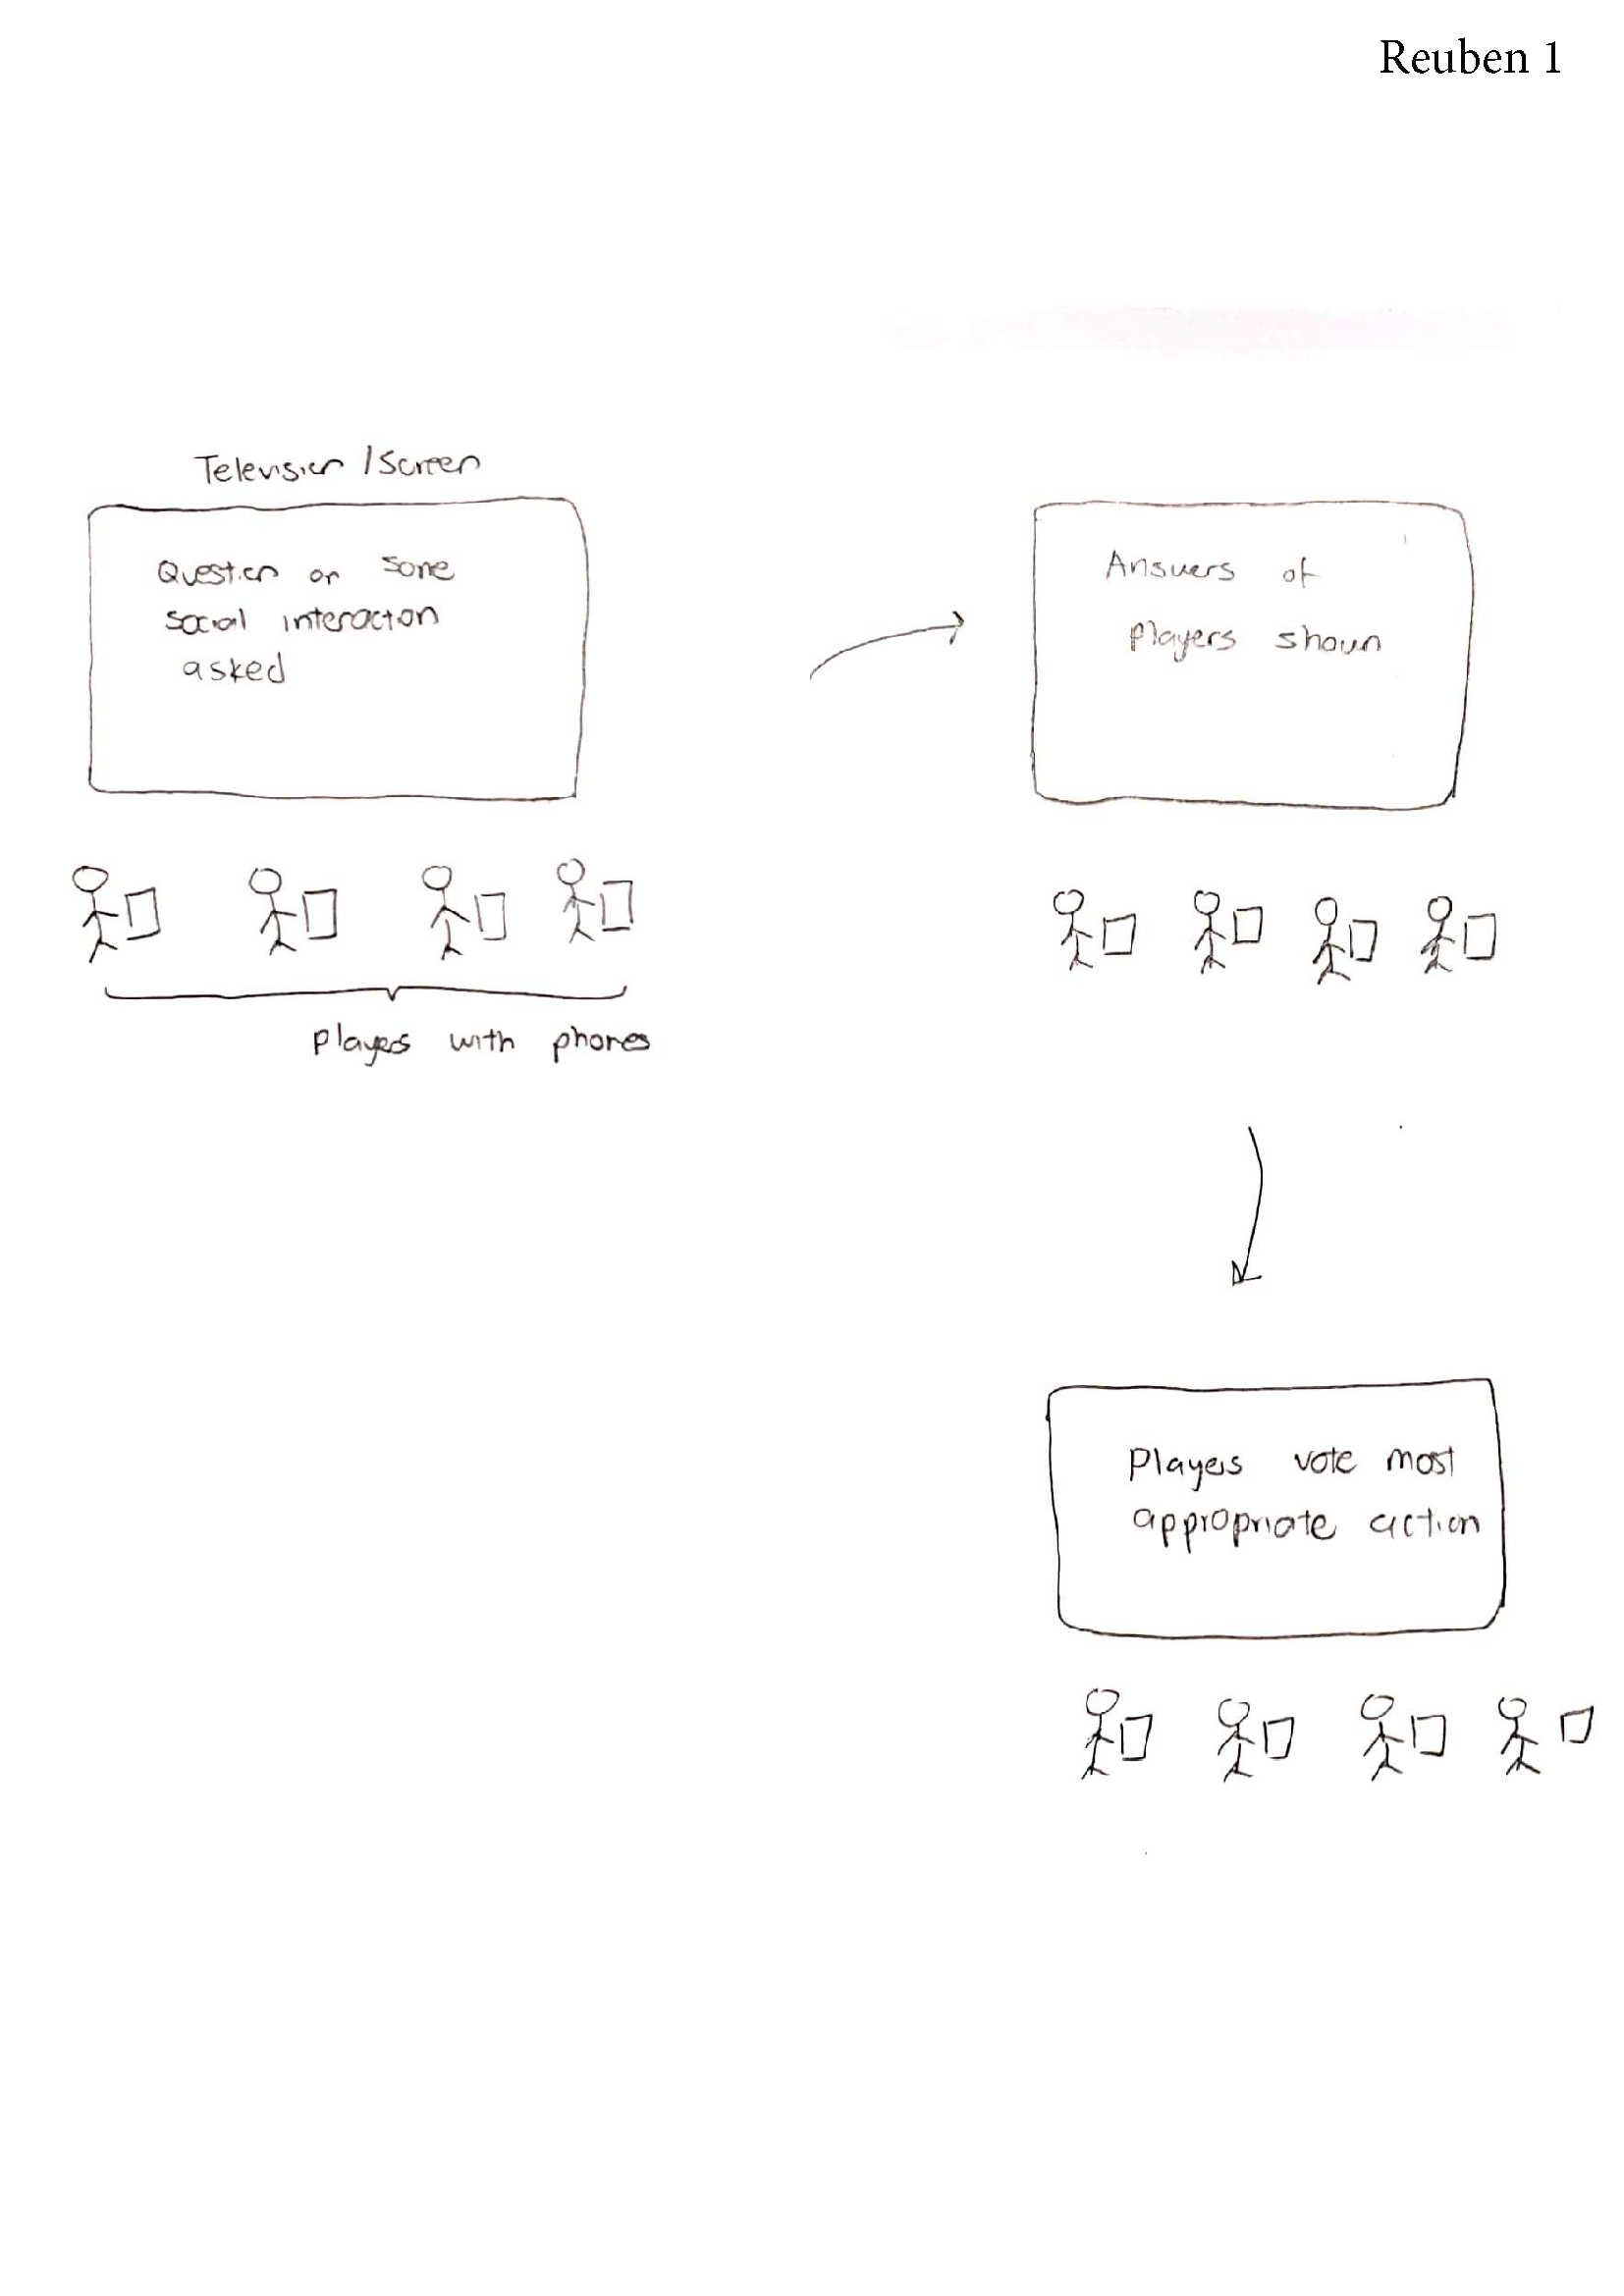 Reuben 1
Television / Screen
Question on some
social interaction
asked
Players with phones
Answers of
players shown
Players vote most
appropriate action